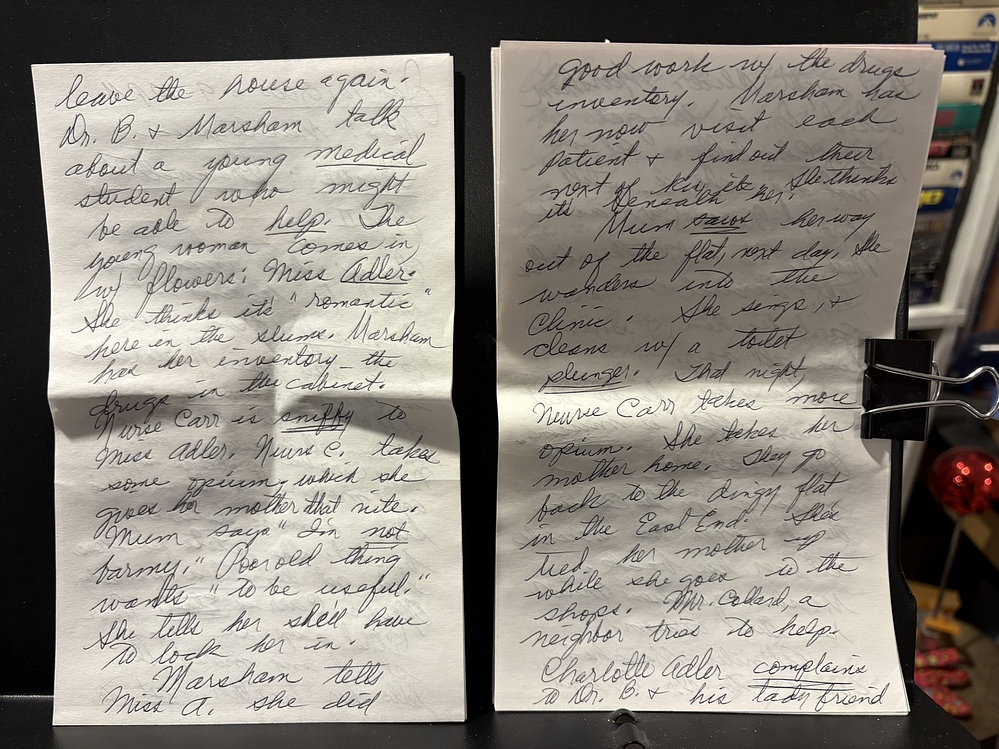 leave the house again.
Dr. B. & Marsham talk
about a young medical
student who might
be able to help. The
young woman comes in
w/ flowers; Miss Adler.
She thinks it's "romantic"
here in the slums. Marsham
has her inventory the
drugs in the cabinet.
Nurse Carr is sniffy to
Miss Adler. Nurse C. takes
some opium, which she
gives her mother that nite.
Mum says "I'm not
barmy." Poor old thing
wants "to be useful."
She tells her she'll have
to lock her in.
Marsham tells
Miss A. she did
good work w/ the drugs
inventory. Marsham has
her now visit each
patient & find out their
next of kin, etc. She thinks
its beneath her.
Mum saws her way
out of the flat, next day. She
wanders into the
Clinic. She sings, &
cleans w/ a toilet
plunger. That night,
Nurse Carr takes more
opium. She takes her
mother home. They go
back to the dingy flat
in the East End. She
tied her mother up
while she goes to the
shops. Mr. Collard, a
neighbor tries to help.
Charlotte Adler complains
to Dr. B. & his lady friend